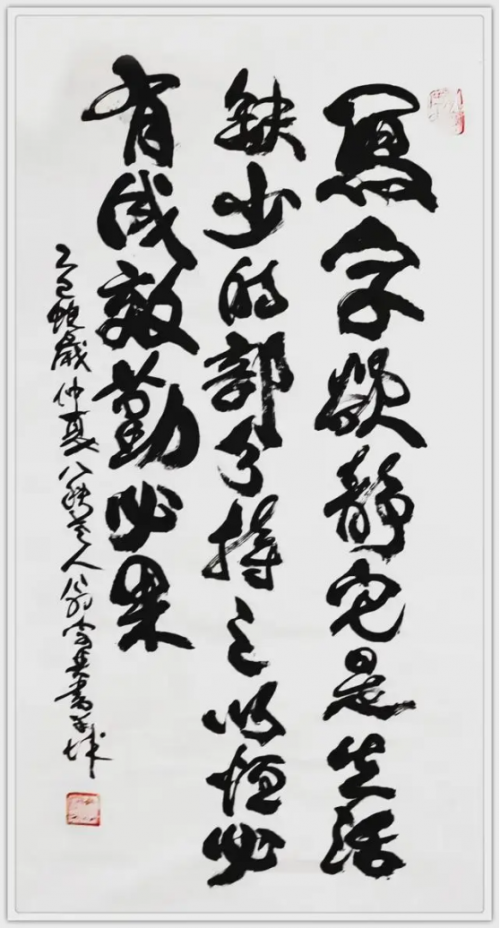 寫字欲静它是生活
缺少的部分持之以恒必
有成效勤必果
乙巳蛇歲仲夏八秩老人書